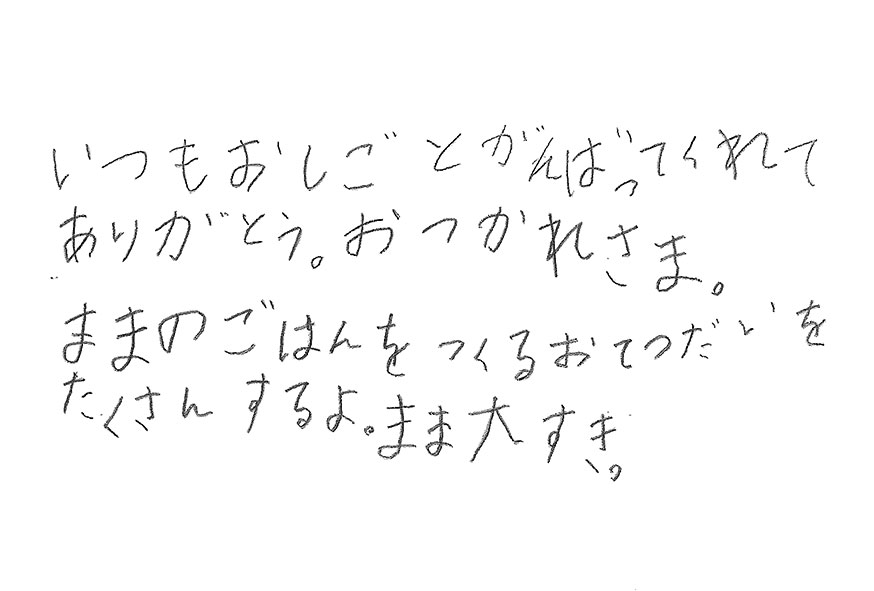 いつもおしごとがんばってくれて
ありがとう。おつかれさま。
ままのごはんをつくるおてつだいを
たくさんするよ。まま大すき。